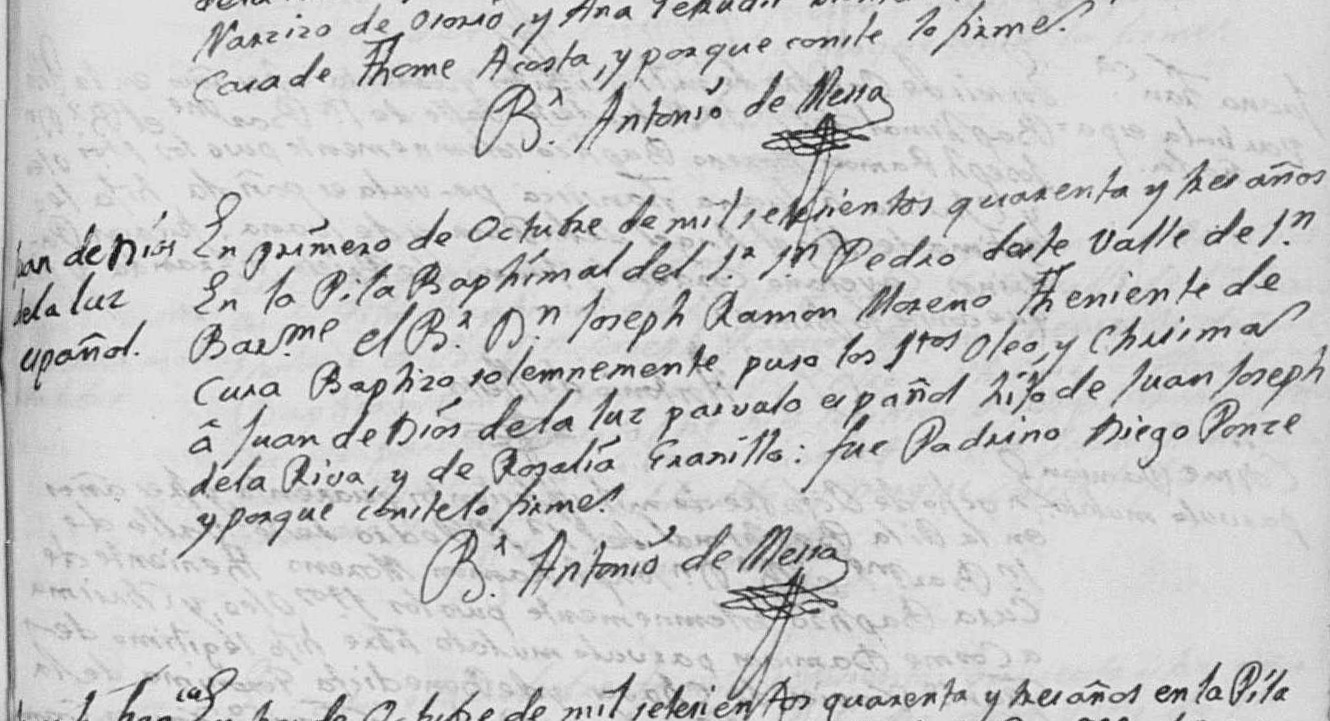 Narziso de Osorio, y Ana
Cura de Thome Acosta, y porque conste lo firme.
B.r Antonio de Messa
Juan de Dios
dela luz
español.
En primero de Octubre de mil setesientos quarenta y tres años
En la Pila Baphismal del S.r S.n Pedro deste Valle de S.n
Bar.me el B.r D.n Joseph Ramon Moreno Theniente de
Cura Baptizo solemnemente puso los S.tos Oleo, y Chrisma
â Juan de Dios de la luz parvulo español hijo de Juan Joseph
dela Riva, y de Rosalia Granillo: fue Padrino Diego Ponze
y porque conste lo firme.
B.r Antonio de Messa
En tres de Octubre de mil setesientos quarenta y tres años en la Pila